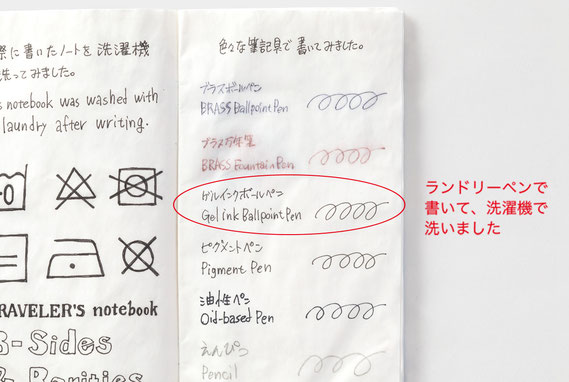 際に書いたノートを洗濯機
洗ってみました。
s notebook was washed with
laundry after writing.
RAVELER'S notebook
B-Sides
& Rarities
色々な筆記具で書いてみました。
ブラスボールペン
BRASS Ballpoint Pen
ブラス万年筆
BRASS Fountain Pen
ゲルインクボールペン
Gel ink Ballpoint Pen
ピグメントペン
Pigment Pen
油性ペン
Oil-based Pen
えんぴつ
Pencil
ランドリーペンで
書いて、洗濯機で
洗いました